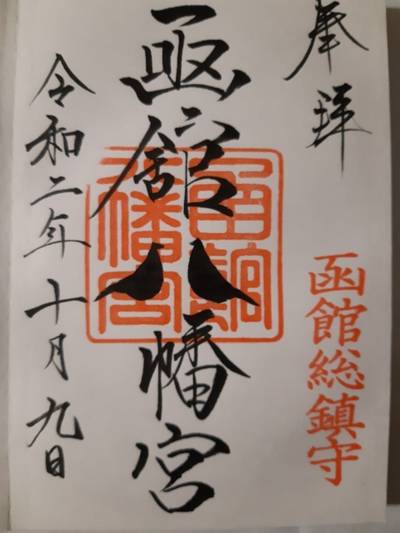 奉拝
函館総鎮守
函館八幡宮
函館八幡宮
令和二年十月九日